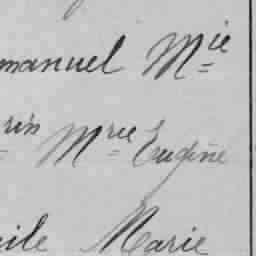 manuel Mie
rin Mrie Eugène
cile Marie